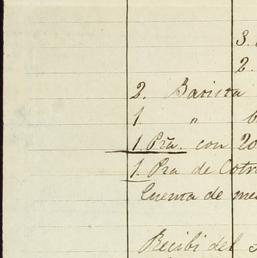 3.
2.
2. Barista
1. "
1. Pza. con 20
1. Pza de Cotr
Cuenta de me
Recibi del